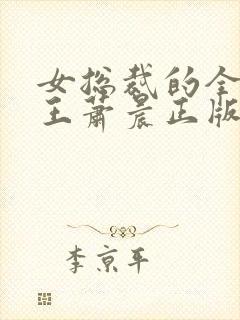 女总裁的全
王萧晨正版
李京平